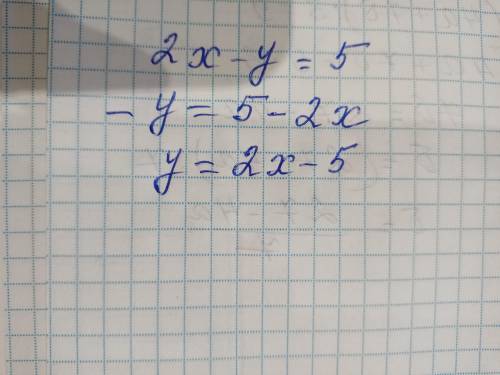 2x - y = 5
- y = 5 - 2x
y = 2x - 5